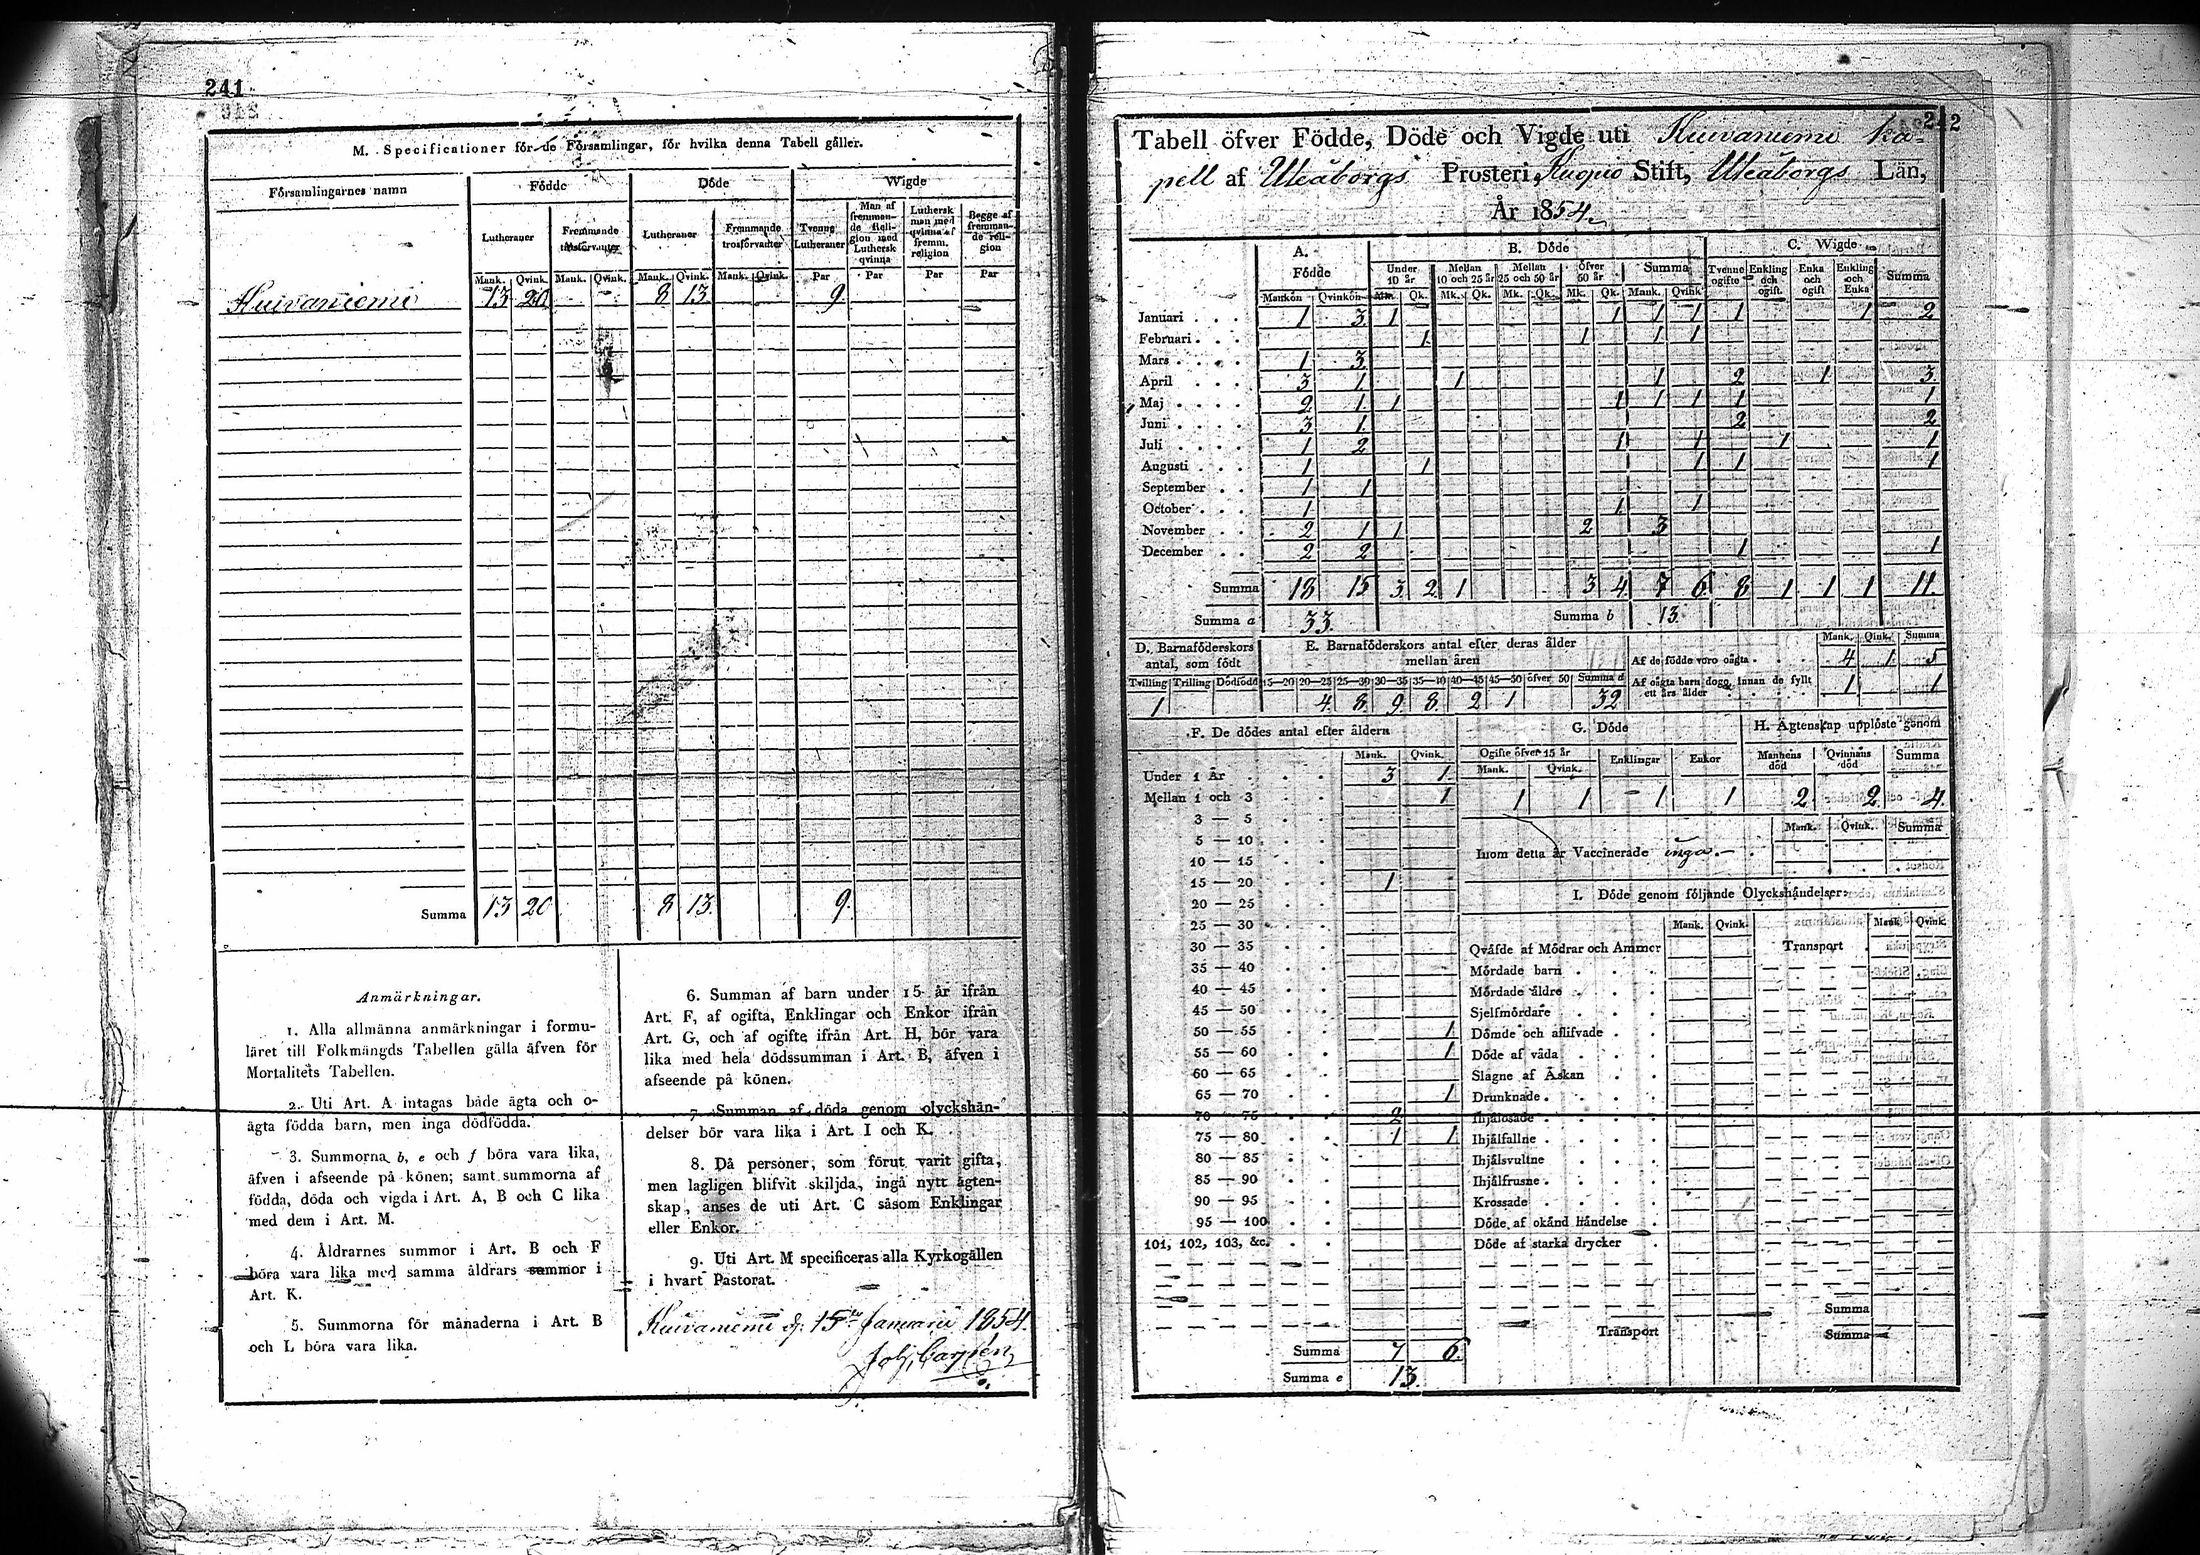 241
M. Specificationer för de Församlingar, för hvilka denna Tabell gäller.
Församlingarnes namn | Födde | Döde | Wigde
Lutheraner | Fremmande trosförvanter | Lutheraner | Fremmande trosförvanter | Tvenne Lutheraner | Man af fremmande Religion med Luthersk qvinna | Luthersk man med qvinna af fremm. religion | Begge af fremmande religion
Mank. Qvink. Mank. Qvink. Mank. Qvink. Mank. Qvink. Par Par Par Par
Kuivaniemi 13 20 - - 8 13 9
Summa 13 20 8 13. 9.
Anmärkningar.
1. Alla allmänna anmärkningar i formu-
läret till Folkmängds Tabellen gälla äfven för
Mortalitets Tabellen.
2. Uti Art. A intagas både ägta och o-
ägta födda barn, men inga dödfödda.
3. Summorna b, e och f böra vara lika,
äfven i afseende på könen; samt summorna af
födda, döda och vigda i Art. A, B och C lika
med dem i Art. M.
4. Åldrarnes summor i Art. B och F
böra vara lika med samma åldrars summor i
Art. K.
5. Summorna för månaderna i Art. B
och L böra vara lika.
6. Summan af barn under 15 år ifrån
Art. F, af ogifta, Enklingar och Enkor ifrån
Art. G, och af ogifte ifrån Art. H, bör vara
lika med hela dödssumman i Art. B, äfven i
afseende på könen.
7. Summan af döda genom olyckshän-
delser bör vara lika i Art. I och K.
8. Då personer, som förut varit gifta,
men lagligen blifvit skiljda, ingå nytt ägten-
skap, anses de uti Art. C såsom Enklingar
eller Enkor.
9. Uti Art. M specificeras alla Kyrkogällen
i hvart Pastorat.
Kuivaniemi d. 15de Januarii 1854.
242
Tabell öfver Födde, Döde och Vigde uti Kuivaniemi ka-
pell af Uleåborgs Prosteri, Kuopio Stift, Uleåborgs Län,
År 1854.
A. Födde | B. Döde | C. Wigde
Under 10 år | Mellan 10 och 25 år | Mellan 25 och 50 år | Öfver 50 år | Summa | Tvenne ogifte | Enkling och ogift. | Enka och ogift | Enkling och Enka | Summa
Mankön Qvinkön Mk. Qk. Mk. Qk. Mk. Qk. Mk. Qk. Mank. Qvink.
Januari . . . 1 3 1 1 1 1 1 1 2
Februari . . . 1 1 1 1
Mars . . . 1 3
April . . . 3 1 1 1 2 1 3
Maj . . . . 2 1 1 1 1 1 1 1
Juni . . . . 3 1 2 2
Juli . . . . 1 2 1 1 1 1
Augusti . . . 1 1 1 1 1
September . . 1 1
October . . . 1 1 1
November . . 2 1 1 2 3
December . . 2 2 1 1
Summa 18 15 3 2 1 3 4 7 6 8 1 1 1 11.
Summa a 33 Summa b 13.
D. Barnaföderskors antal, som födt
Tvilling Trilling Dödfödd
1
E. Barnaföderskors antal efter deras ålder
mellan åren
15—20 20—25 25—30 30—35 35—40 40—45 45—50 öfver 50 Summa d
4 8 9 8 2 1 32
Mank. Qink. Summa
Af de födde voro oägta . . . 4 1 5
Af oägta barn dogo innan de fyllt
ett års ålder 1 1
F. De dödes antal efter åldern
Mank. Qvink.
Under 1 År . . . 3 1
Mellan 1 och 3 . . 1
3 — 5
5 — 10
10 — 15
15 — 20 1
20 — 25
25 — 30
30 — 35
35 — 40
40 — 45
45 — 50
50 — 55 1
55 — 60 1
60 — 65
65 — 70 1
70 — 75 2
75 — 80 1 1
80 — 85
85 — 90
90 — 95
95 — 100
101, 102, 103, &c.
Summa 7 6
Summa e 13.
G. Döde
Ogifte öfver 15 år | Enklingar | Enkor
Mank. Qvink.
1 1 1 1
H. Ägtenskap upplöste genom
Mannens död | Qvinnans död | Summa
2 2 4.
Mank. Qvink. Summa
Inom detta år Vaccinerade inga.
I. Döde genom följande Olyckshändelser:
Mank. Qvink. Mank. Qvink.
Qväfde af Mödrar och Ammor
Transport
Mördade barn
Mördade äldre
Sjelfmördare
Dömde och aflifvade
Döde af våda
Slagne af Åskan
Drunknade
Ihjälosade
Ihjälfallne
Ihjälsvultne
Ihjälfrusne
Krossade
Döde af okänd händelse
Döde af starka drycker
Transport
Summa
Summa